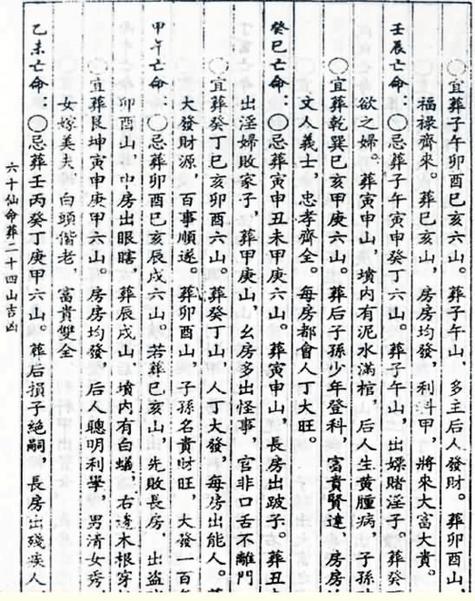 ○宜葬子午卯酉巳亥六山。葬子午山，多主后人發財。葬卯酉山，
福祿齊來。葬巳亥山，房房均發，利科甲，將來大富大貴。
壬辰亡命：○忌葬子午寅申癸丁六山。葬子午山，出嫖賭淫子。葬癸
欲之婦。葬寅申山，墳内有泥水滿棺，后人生黄腫病，子孫
○宜葬乾巽巳亥甲庚六山。葬后子孫少年登科，富貴賢達，房房
文人義士，忠孝齊全。每房都會人丁大旺。
癸巳亡命：○忌葬寅申丑未甲庚六山。葬寅申山，長房出跛子。葬丑
出淫婦敗家子，葬甲庚山，幺房多出怪事，官非口舌不離門
○宜葬癸丁巳亥卯酉六山。葬癸丁山，人丁大發，每房出能人。
大發財源，百事順遂。葬卯酉山，子孫名貴財旺，大發一百
甲午亡命：○忌葬卯酉巳亥辰戌六山。若葬巳亥山，先敗長房，出盗
卯酉山，中房出眼瞎，葬辰戌山后墳内有白蟻，右邊木根穿
○宜葬艮坤寅申庚甲六山。房房均發，后人聰明利學，男清女秀，
女嫁美夫，白頭偕老，富貴雙全
乙未亡命：○忌葬壬丙癸丁庚甲六山。葬后損子絶嗣，長房出殘疾人
六十仙命葬二十四山吉凶